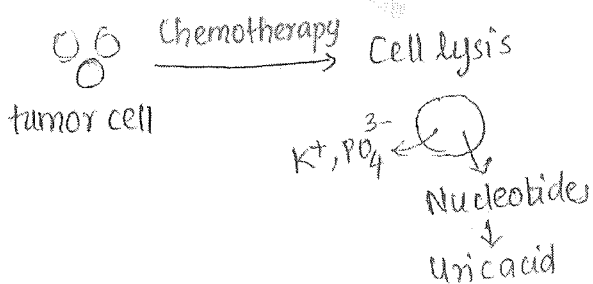 Chemotherapy
Cell lysis
tumor cell
K⁺, PO₄³⁻
Nucleotides
Uric acid